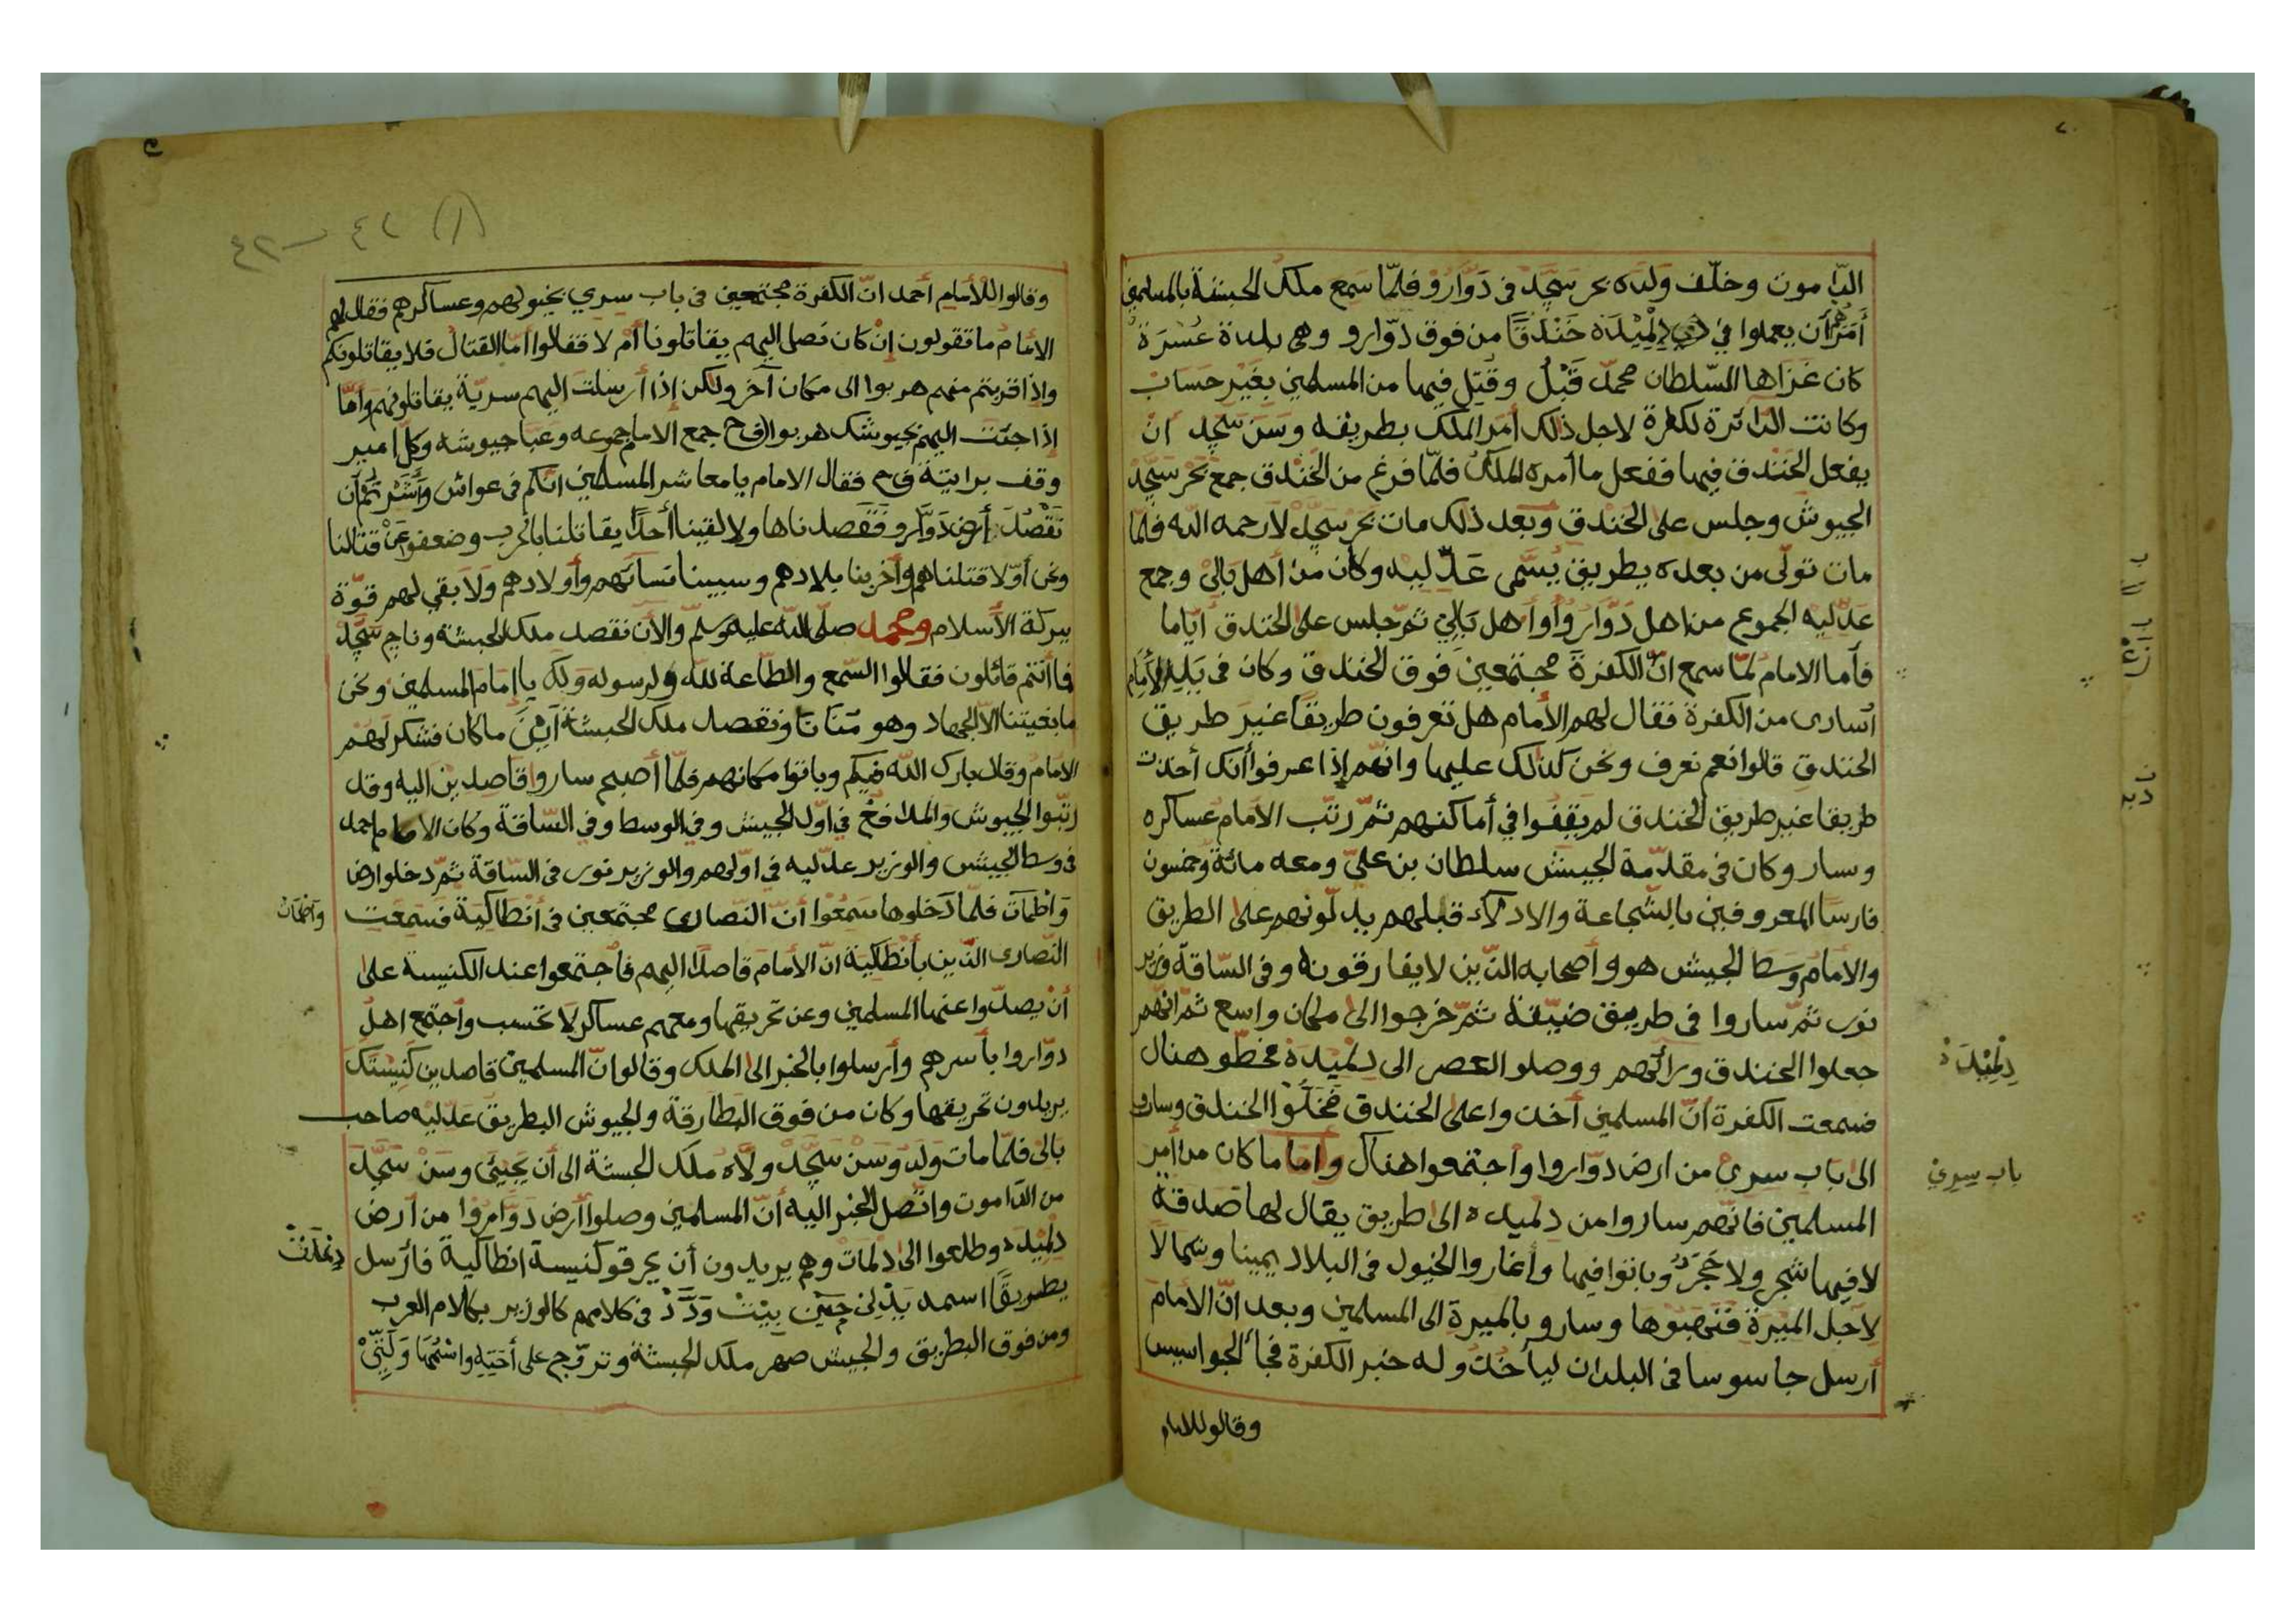 الدّاموت وخلّف ولده بحر سَجَّدْ في دَوَّارُوْ فلمّا سَمع ملك الحبشة بالمسلمين
أَمَرَهُمْ أن يعملوا في دِلْمِيْدَهْ خَنْدَقًا من فوق دَوّارو وهي بلدة عُسْرَةْ
كان غَزَاها السّلطان محمّد قَبْلُ وقُتِل فيها من المسلمين بغَيْر حسَاب
وكانت الدائرة لكفرة لاجل ذلك أمَر الملك بطريقه وسَنْ سَجَّدْ أنْ
يفعل الخَنْدق فيها ففعل ما أمره الملك فلمّا فرغ من الخَنْدق جمع بَحْر سَجَّدْ
الجيوش وجلس على الخندق وبعد ذلك مات بحر سَجَّدْ لا رحمه الله فلمّا
مات تولّى من بعده بطريق يُسَمّى عَدّليه وكان من أهل بَالِيْ وجمع
عدّليه الجموع من اهل دَوّارُوا وأهل بَالِيْ ثمّ جلس على الخندق أيّاما
فأما الامام لمّا سمع انّ الكفرة مجتمعينَ فوق الخندق وكان في يَدِ الأمام
أسارى من الكفرة فقال لهم الأمام هل تعرفون طريقًا غيرَ طريق
الخندقِ قالوا نعم نعرف ونحن كذلك عليها وانّهم إذا عرفوا أنك أخذت
طريقا غير طريق الخندق لم يَقِفُوا في أماكنهم ثمّ رتّب الأمام عساكره
وسار وكان في مقدّمة الجيش سلطان بن عليّ ومعه مائة وخمسون
فارسا المعروفين بالشّجاعة والادلاّء قبلهم يدلّونهم على الطريق
والأمام وسط الجيش هو وأصحابه الذين لا يفارقونه وفي السّاقة وزير
نور ثمّ ساروا في طريق ضيّقة ثمّ خرجوا الى مكان واسع ثمّ انّهم
جعلوا الخندق ورائهم ووصلو العصر الى دلميدة فحطّو هنال
فسمعت الكفرة أنّ المسلمين أخذوا على الخندق فَخَلّوْا الخندق وساروا
الى باب سري من ارض دوّاروا واجتمعوا هنال وأما ما كان من أمر
المسلمين فانّهم ساروا من دلميده الى طريق يقال لها صدقة
لا فيها شجر ولا حَجَرْ وباتوا فيها وأغاروا الخيول في البلاد يمينا وشمالاً
لاجل المِيْرة فَنَهَبُوْها وسارو بالميرة الى المسلمين وبعد انّ الأمام
أرسل جاسوسا في البلدان ليأخذو له خبر الكفرة فجأ الجواسيس
وقالو للامام
دِلْمِيْدَهْ
باب سِرِيْ
(١) ٤٢ – ٤٣
وقالوا للأمام أحمد انّ الكفرة مجتمعين في باب سِري بخيولهم وعساكرهم فقال لهم
الأمام ما تقولون إنْ كان نصل اليهم يقاتلونا أمْ لا فقالوا أمّا القتال فلا يقاتلونكم
وإذا قربتم منهم هربوا الى مكان آخر ولكن إذا أرسلت اليهم سريّة يقاتلونهم وأمّا
إذا جئت اليهم بجيوشك هربوا فح جمع الامام جموعه وعبا جيوشه وكلّ امير
وقف برايتة فح فقال الامام يا معاشر المسلمين انّكم في عواش وأَشَرْتُمْ أن
نَقْصُدَ أرض دَوّارو فَقصدناها ولا لقينا أحدًا يقاتلنا بالحرب وضعفو عَنْ قتالنا
ونحن أوّلا قتلناهم وأخربنا بلادهم وسبينا نسائهم وأولادهم ولا بقي لهم قوّة
ببركة الأسلام ومحمد صلّى الله عليه وسلّم والآن نقصد ملك الحبشة وناج سَجَّدْ
فما أنتم قائلون فقالوا السّمع والطّاعة لله ولرسوله ولك يا إمام المسلمين ونحن
ما بغيتنا الاّ الجهاد وهو مُنَانَا ونقصد ملك الحبشة أينَ ما كان فشكر لَهُمْ
الامام وقال بارك الله فيكم وباتوا مكانهم فلمّا أصبح ساروا قاصدين اليه وقد
رتّبوا الجيوش والمدافع في اوّل الجيش وفي الوسط وفي السّاقة وكان الامام احمد
في وسط الجيش والوزير عدّليه في اوّلهم والوزير نور في السّاقة ثمّ دخلوا ارض
وَاظمات فلمّا دَخلوها سَمِعُوا أنّ النّصارى مجتمعين في أنطاكية فسَمِعَت
النّصارى الذين بأنطاكية انّ الأمام قاصدًا اليهم فاجتمعوا عند الكنيسة على
أنْ يصدّوا عنها المسلمين وعن تحريقها ومعهم عساكر لا تحسب واجتمع اهل
دوّاروا بأسرهم وأرسلوا بالخبر الى الملك وقالوا نّ المسلمين قاصدين كَنِيْسَتَكَ
يريدون تحريقها وكان من فوق البطارقة والجيوش البطريق عدّليه صاحب
بالى فلمّا مات ولد وَسَنْ سَجَّدْ ولّاه ملك الحبشة الى أن يَجِيْئَ وسَنْ سَجَّدْ
من الدّاموت واتّصل الخبر اليه أنّ المسلمين وصلوا أرض دَوَّارُوا من أرض
دلميده وطلعوا الى دلمات وهم يريدون أن يحرقو كنيسة انطاكية فأرسل
بطريقًا اسمه يَدْلى جِمَيْن بيْتْ وَدَّدْ في كلامهم كالوزير بكلام العرب
ومن فوق البطريق والجيش صهر ملك الحبشة وتزوّج على أختِهِ واسْمُها وَلَتِّيْ
واظمات